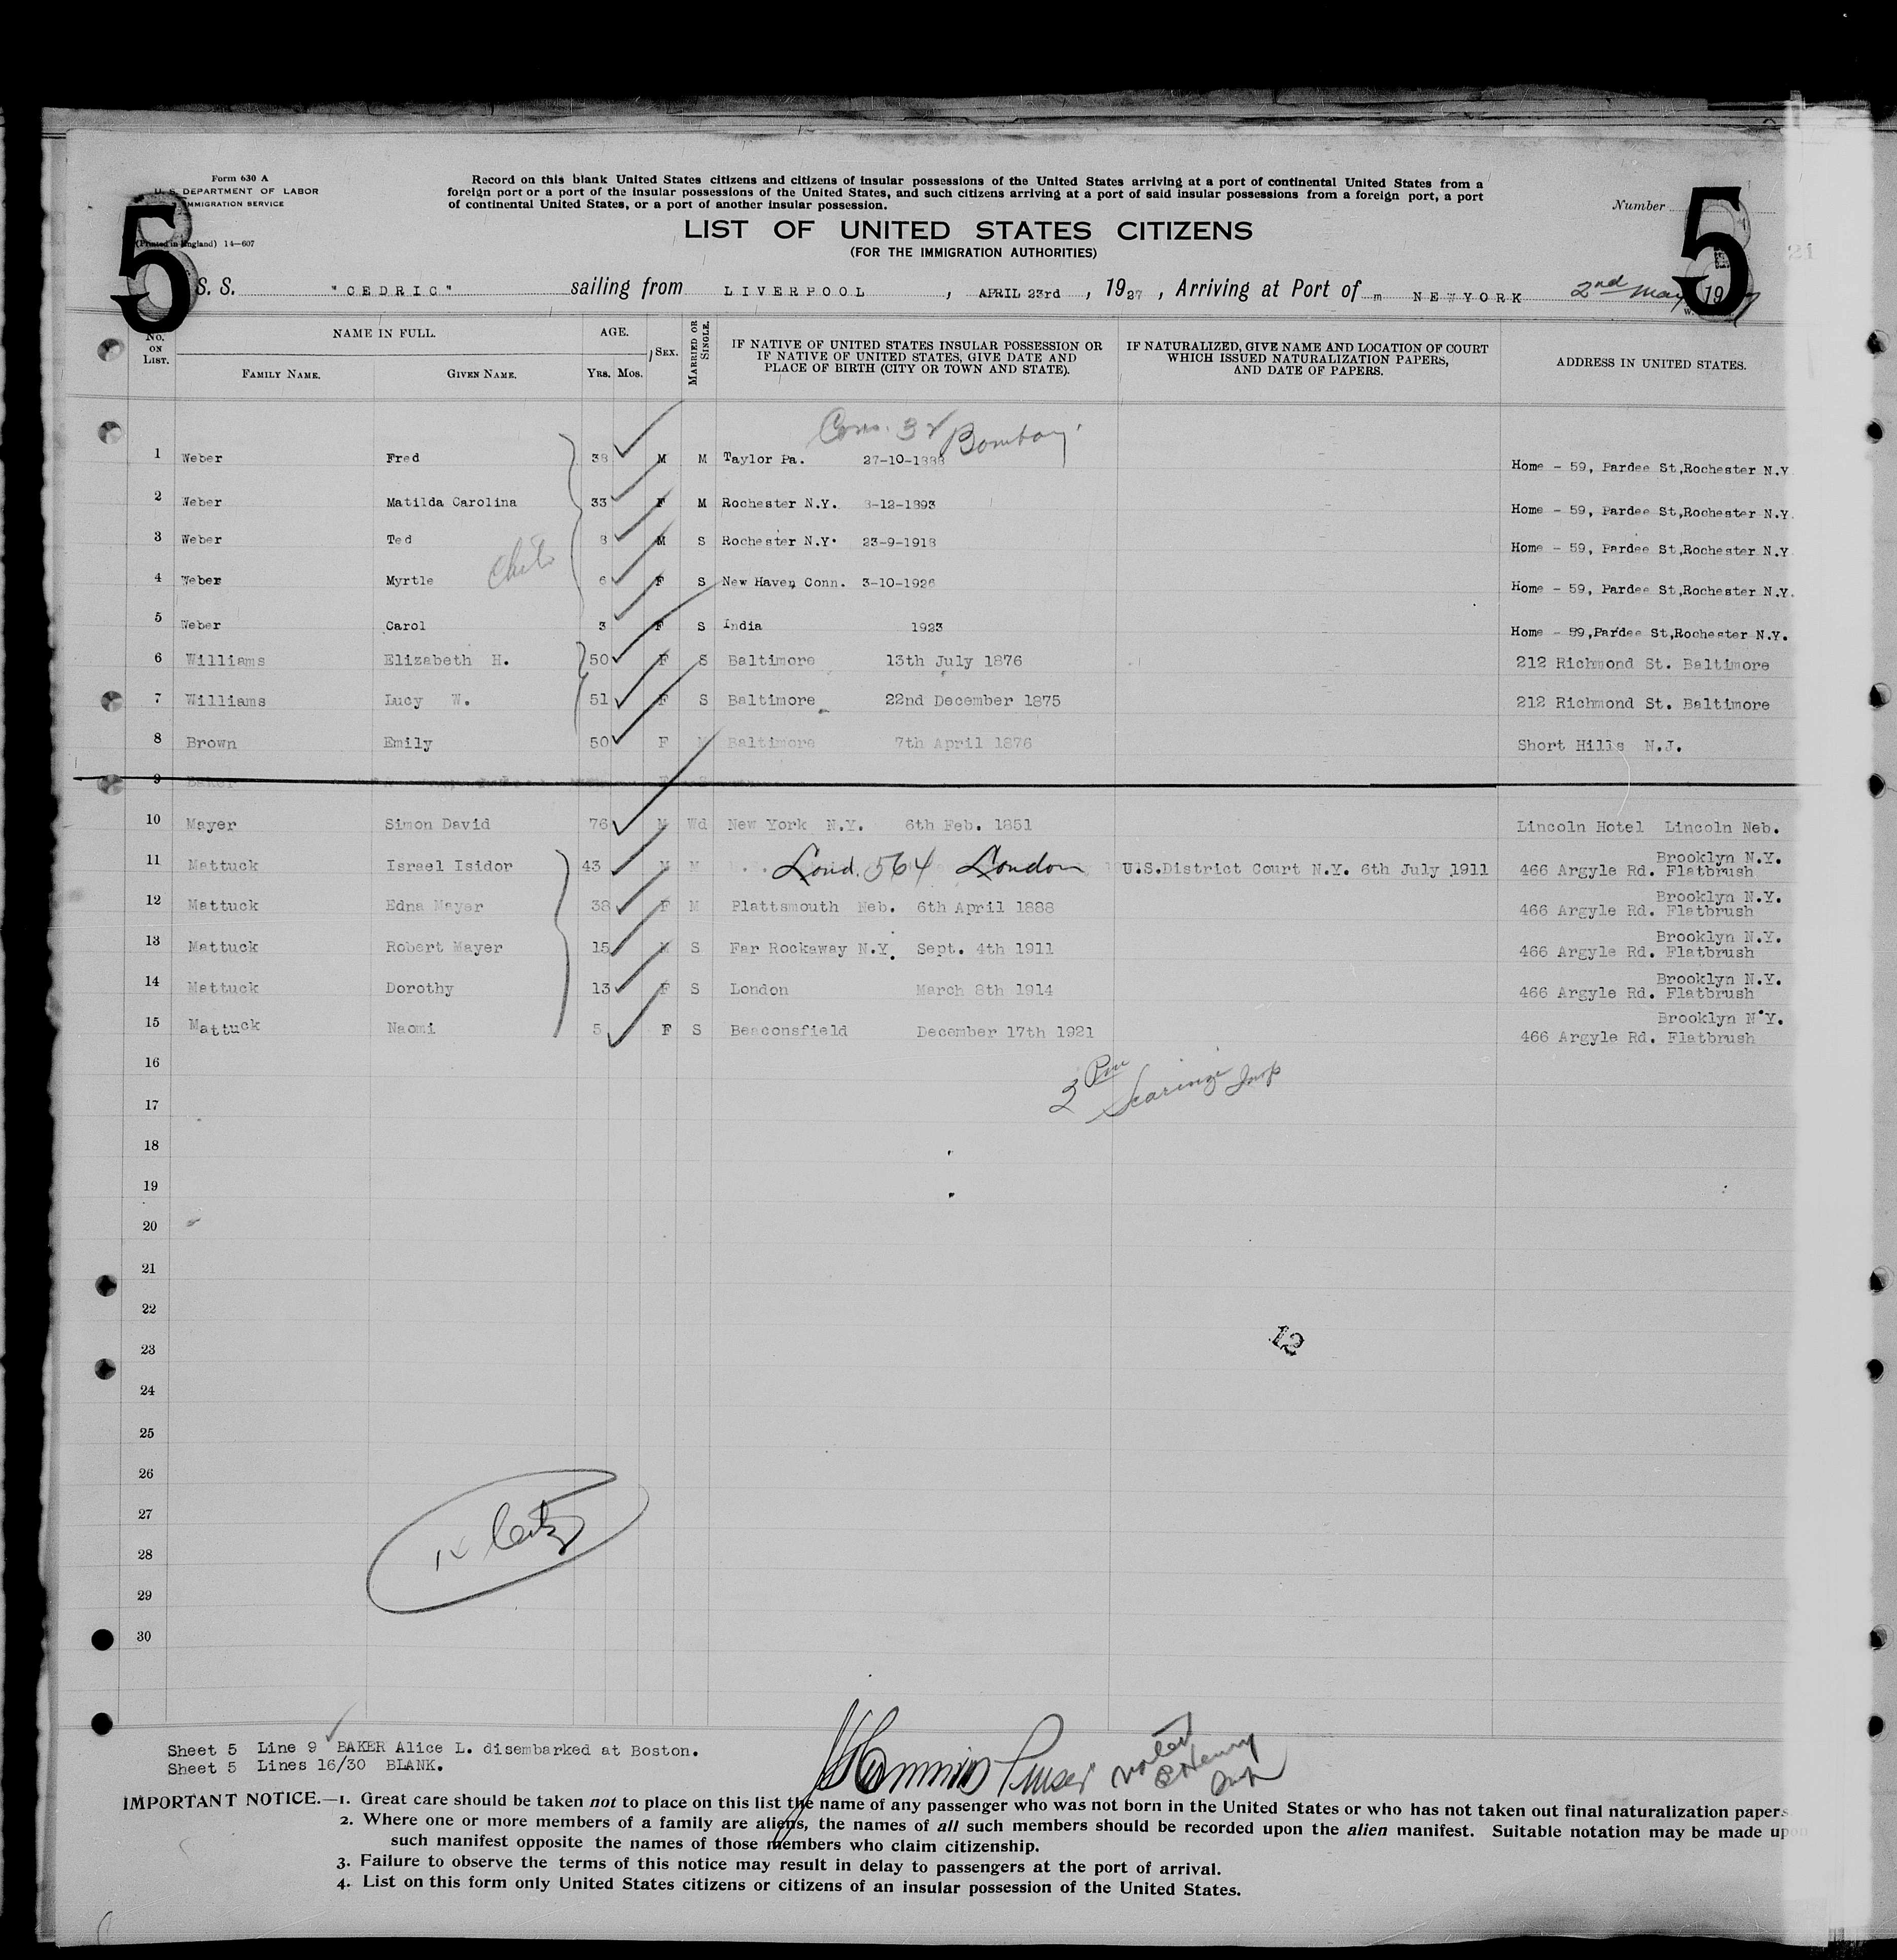 Form 630 A
U. S. DEPARTMENT OF LABOR
IMMIGRATION SERVICE
(Printed in England) 14—607
5
5
Record on this blank United States citizens and citizens of insular possessions of the United States arriving at a port of continental United States from a
foreign port or a port of the insular possessions of the United States, and such citizens arriving at a port of said insular possessions from a foreign port, a port
of continental United States, or a port of another insular possession.
Number
LIST OF UNITED STATES CITIZENS
(FOR THE IMMIGRATION AUTHORITIES)
S. S. "CEDRIC" sailing from LIVERPOOL, APRIL 23rd, 1927, Arriving at Port of NEWYORK 2nd May 19
NO. ON LIST. NAME IN FULL. AGE. SEX. MARRIED OR SINGLE. IF NATIVE OF UNITED STATES INSULAR POSSESSION OR IF NATIVE OF UNITED STATES, GIVE DATE AND PLACE OF BIRTH (CITY OR TOWN AND STATE). IF NATURALIZED, GIVE NAME AND LOCATION OF COURT WHICH ISSUED NATURALIZATION PAPERS, AND DATE OF PAPERS. ADDRESS IN UNITED STATES.
FAMILY NAME. GIVEN NAME. YRS. MOS.
Bombay
1 Weber Fred 38 M M Taylor Pa. 27-10-1888 Home - 59, Pardee St,Rochester N.Y
2 Weber Matilda Carolina 33 F M Rochester N.Y. 8-12-1893 Home - 59, Pardee St,Rochester N.Y.
3 Weber Ted 8 M S Rochester N.Y. 23-9-1918 Home - 59, Pardee St,Rochester N.Y
4 Weber Myrtle 6 F S New Haven Conn. 3-10-1926 Home - 59, Pardee St,Rochester N.Y.
5 Weber Carol 3 F S India 1923 Home - 59,Pardee St,Rochester N.Y.
6 Williams Elizabeth H. 50 F S Baltimore 13th July 1876 212 Richmond St. Baltimore
7 Williams Lucy W. 51 F S Baltimore 22nd December 1875 212 Richmond St. Baltimore
8 Brown Emily 50 F M Baltimore 7th April 1876 Short Hills N.J.
9 Baker
10 Mayer Simon David 76 M Wd New York N.Y. 6th Feb. 1851 Lincoln Hotel Lincoln Neb.
11 Mattuck Israel Isidor 43 M M Lond. 564 London U.S.District Court N.Y. 6th July 1911 466 Argyle Rd. Flatbrush Brooklyn N.Y.
12 Mattuck Edna Mayer 38 F M Plattsmouth Neb. 6th April 1888 466 Argyle Rd. Flatbrush Brooklyn N.Y.
13 Mattuck Robert Mayer 15 M S Far Rockaway N.Y. Sept. 4th 1911 466 Argyle Rd. Flatbrush Brooklyn N.Y.
14 Mattuck Dorothy 13 F S London March 8th 1914 466 Argyle Rd. Flatbrush Brooklyn N.Y.
15 Mattuck Naomi 5 F S Beaconsfield December 17th 1921 466 Argyle Rd. Flatbrush Brooklyn N.Y.
16
17
18
19
20
21
22
23
12
24
25
26
27
28
29
30
Sheet 5 Line 9 BAKER Alice L. disembarked at Boston.
Sheet 5 Lines 16/30 BLANK.
Purser
noted
IMPORTANT NOTICE.—1. Great care should be taken not to place on this list the name of any passenger who was not born in the United States or who has not taken out final naturalization papers
2. Where one or more members of a family are aliens, the names of all such members should be recorded upon the alien manifest. Suitable notation may be made upon
such manifest opposite the names of those members who claim citizenship.
3. Failure to observe the terms of this notice may result in delay to passengers at the port of arrival.
4. List on this form only United States citizens or citizens of an insular possession of the United States.